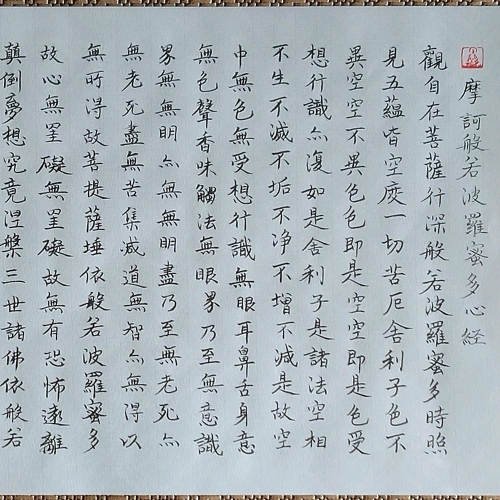 摩訶般若波羅蜜多心経
觀自在菩薩行深般若波羅蜜多時照
見五蘊皆空度一切苦厄舍利子色不
異空空不異色色即是空空即是色受
想行識亦復如是舍利子是諸法空相
不生不滅不垢不淨不增不減是故空
中無色無受想行識無眼耳鼻舌身意
無色聲香味觸法無眼界乃至無意識
界無無明亦無無明盡乃至無老死亦
無老死盡無苦集滅道無智亦無得以
無所得故菩提薩埵依般若波羅蜜多
故心無罣礙無罣礙故無有恐怖遠離
顛倒夢想究竟涅槃三世諸佛依般若